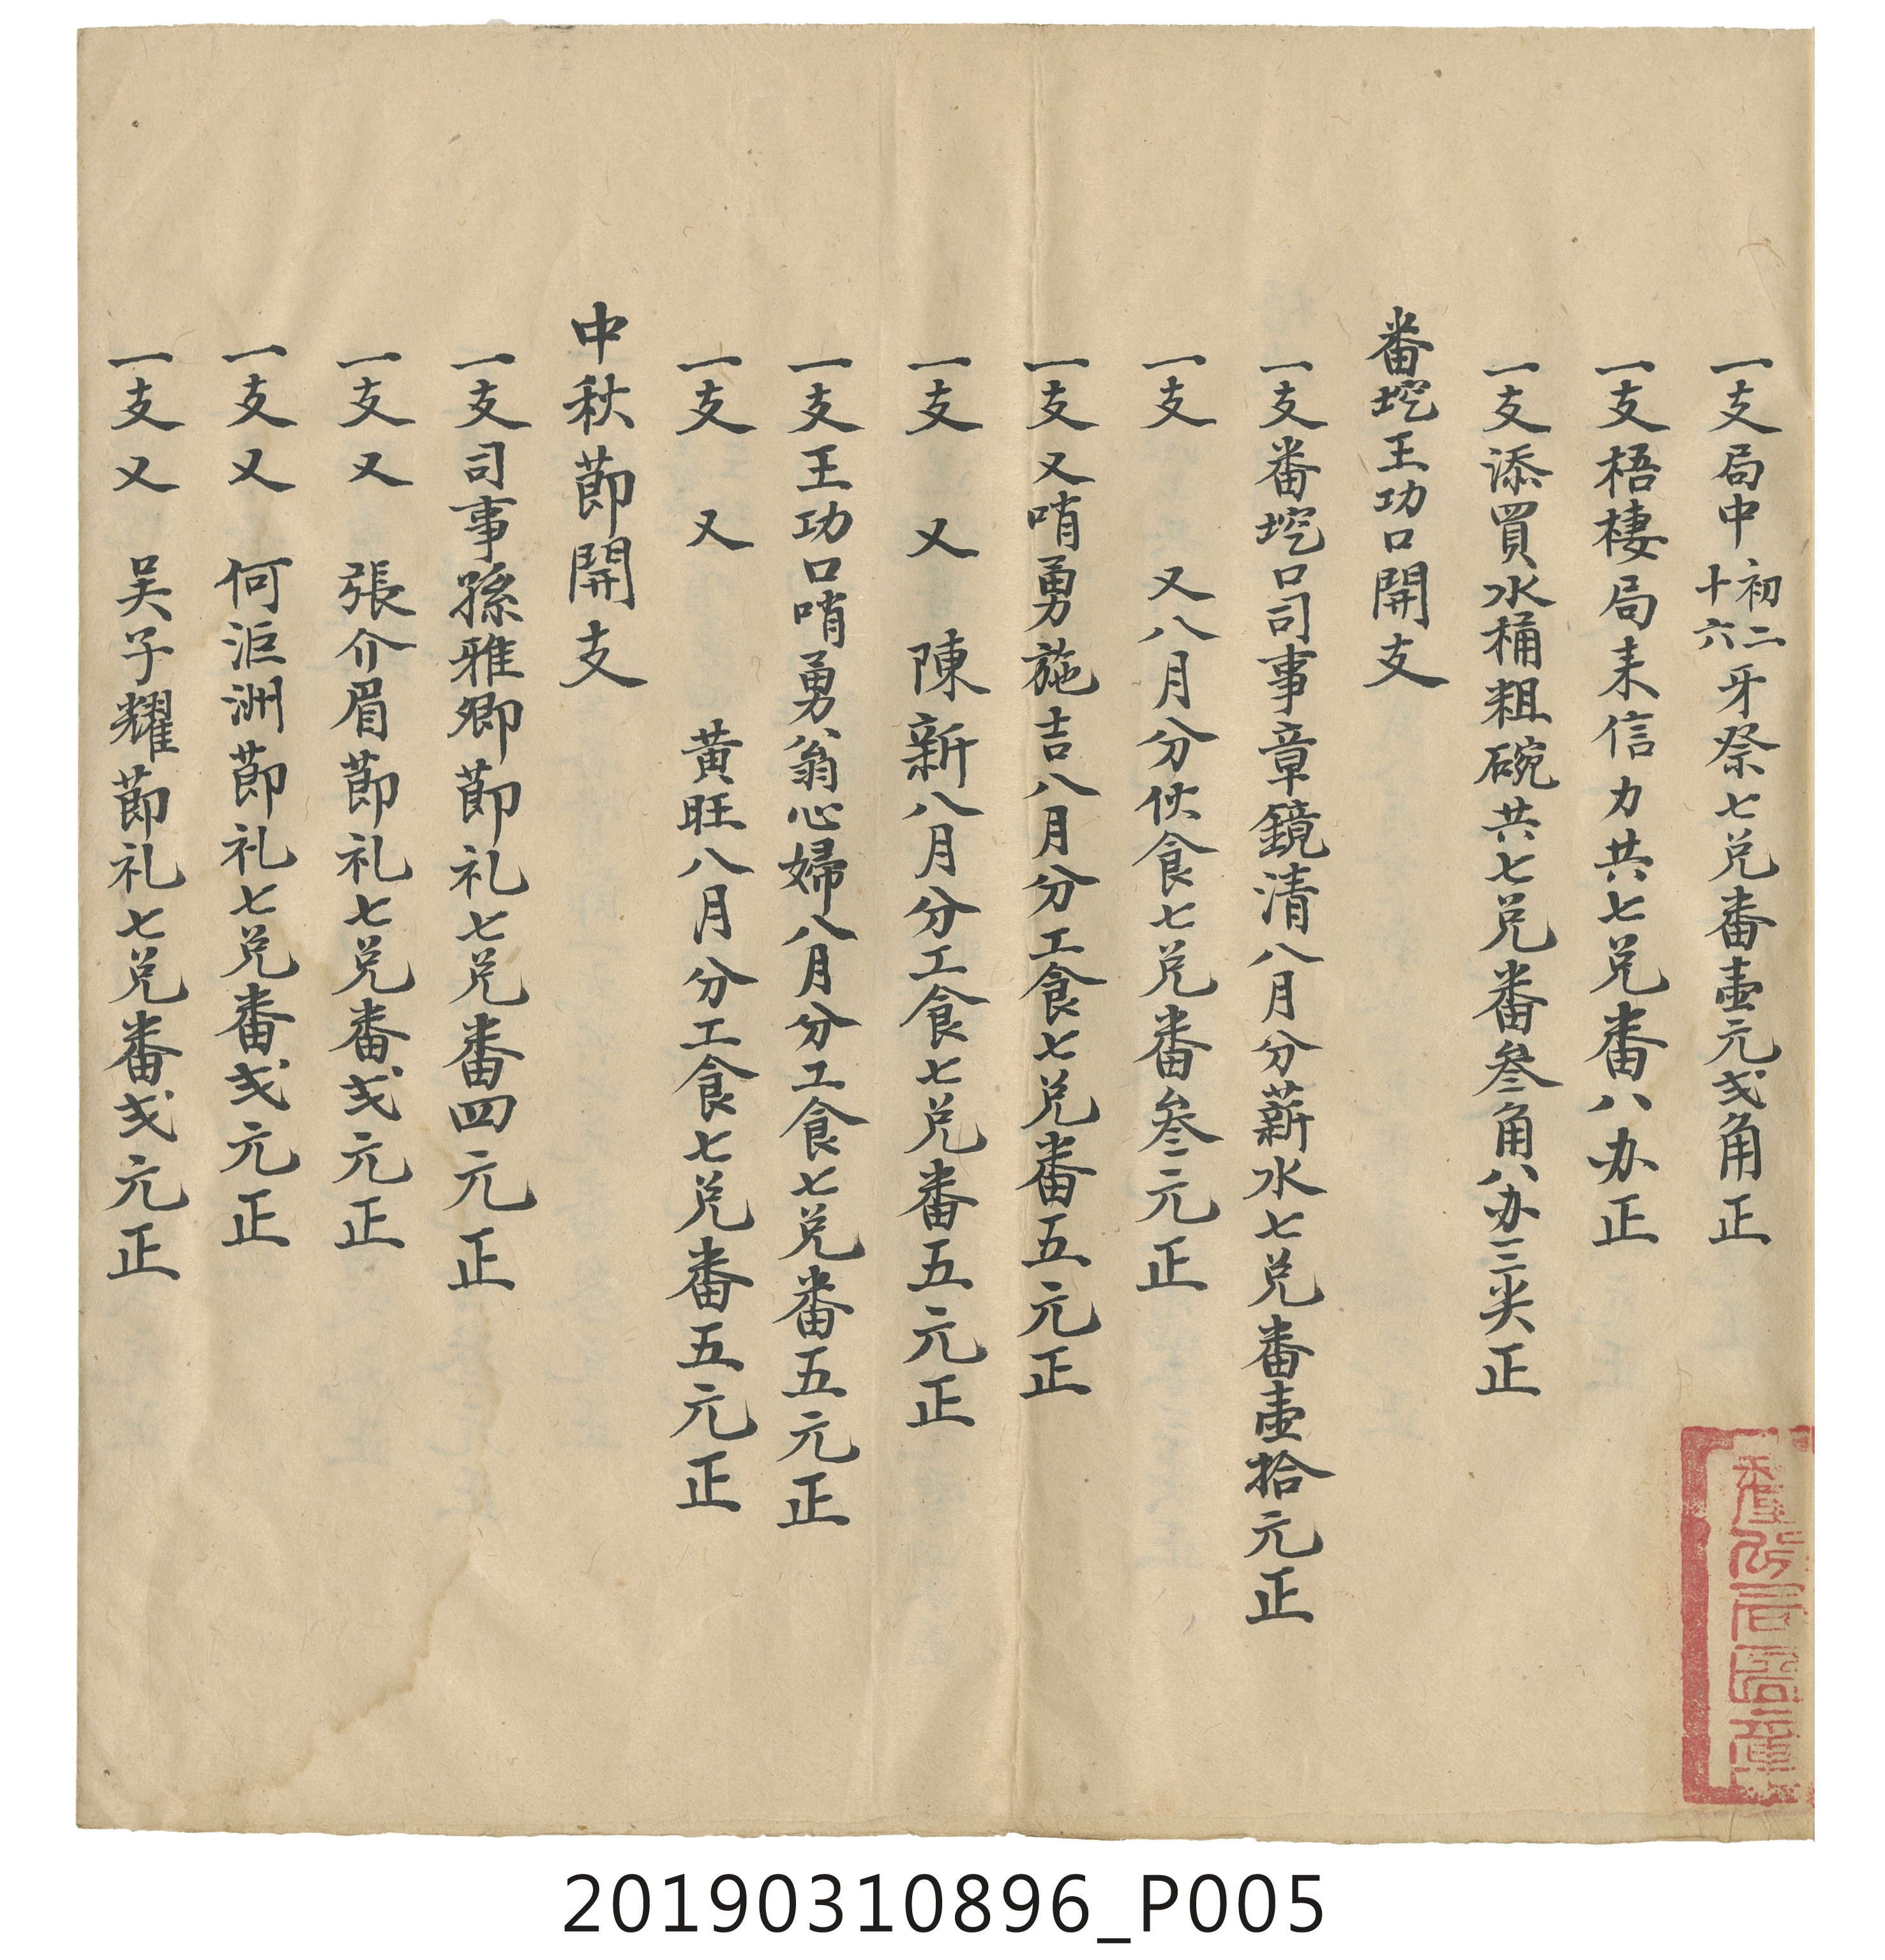 一支局中初二十六牙祭七兌番壹元弍角正
一支梧棲局耒信力共七兌番八办正
一支添買水桶粗碗共七兌番叁角八办三尖正
番挖王功口開支
一支番挖口司事章鏡清八月分薪水七兌番壹拾元正
一支又八月分伙食七兌番叁元正
一支又哨勇施吉八月分工食七兌番五元正
一支又陳新八月分工食七兌番五元正
一支王功口哨勇翁心婦八月分工食七兌番五元正
一支又黄旺八月分工食七兌番五元正
中秋莭開支
一支司事孫雅卿莭礼七兌番四元正
一支又張介眉莭礼七兌番弍元正
一支又何洰洲莭礼七兌番弍元正
一支又吴子耀莭礼七兌番弍元正
20190310896_P005